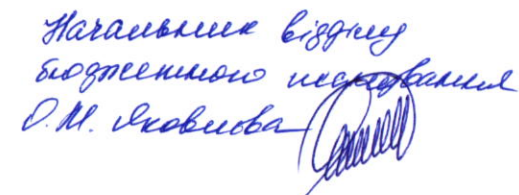 Начальник відділу
бюджетного планування
О.М. Яковлова